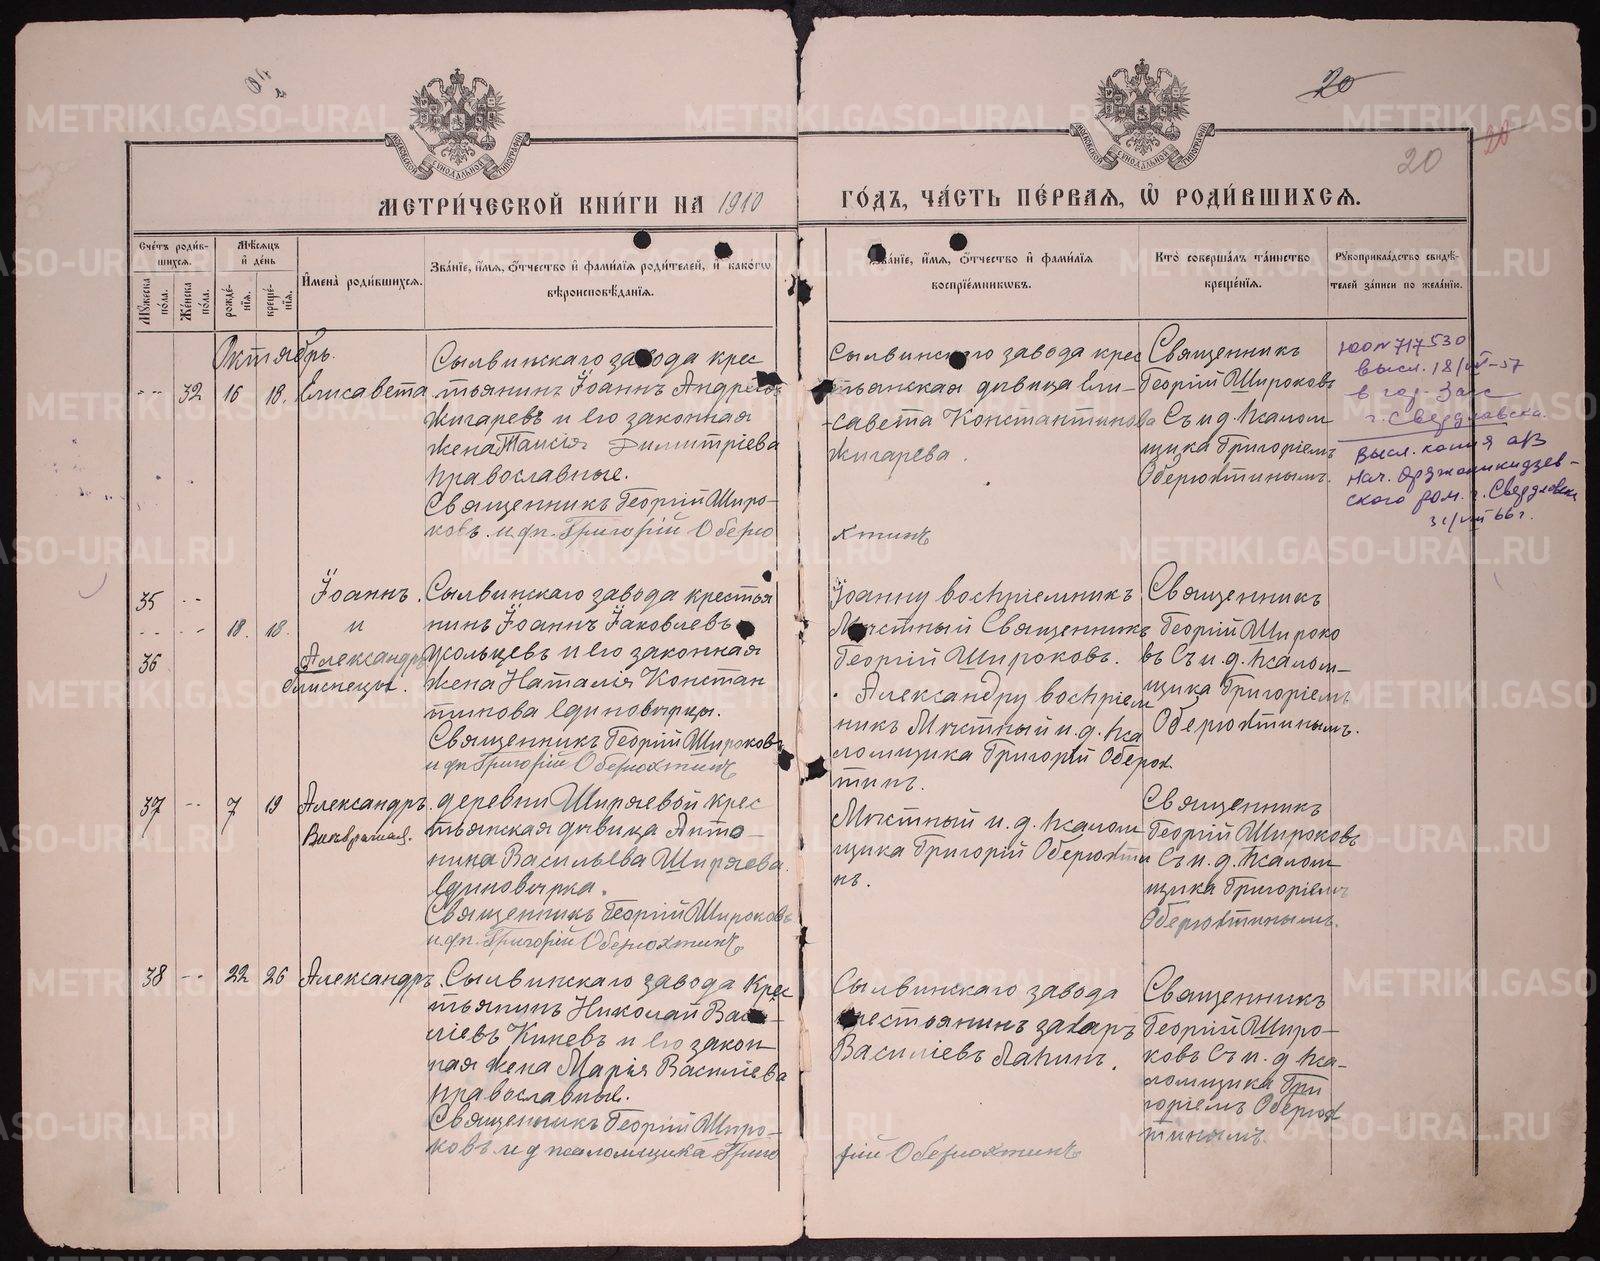 20
20
26
МОСКОВСКОЙ СѴНОДАЛЬНОЙ ТИПОГРАФІИ
МОСКОВСКОЙ СѴНОДАЛЬНОЙ ТИПОГРАФІИ
МЕТРИ́ЧЕСКОЙ КНИ́ГИ НА 1910 ГО́ДЪ, ЧА́СТЬ ПЕ́РВАѦ, Ѡ҆ РОДИ́ВШИХСѦ.
Счетъ роди́вшихсѧ.
Мꙋ́жеска по́ла.
Же́нска по́ла.
Мѣ́сѧцъ и҆ де́нь
рожде́нїѧ.
креще́нїѧ.
И҆мена̀ роди́вшихсѧ.
Зва́нїе, и҆́мѧ, ѻ҆́тчество и҆ фами́лїѧ роди́телей, и҆ како́гѡ
вѣроисповѣ́данїѧ.
Зва́нїе, и҆́мѧ, ѻ҆́тчество и҆ фами́лїѧ
воспрїе́мниковъ.
Кто̀ соверша́лъ та́инство
креще́нїѧ.
Рꙋкоприкла́дство свидѣ́-
телей за́писи по жела́нїю.
Октябрь.
-- 32 16 18. Елисавета
Сылвинскаго завода крес
тьянинъ Іоаннъ Андреевъ
Жигаревъ и его законная
жена Таисія Димитріева
православные.
Священникъ Георгій Широ-
ковъ. и дп. Григорій Оберю
хтинъ
Сылвинскаго завода крес
тьянская дѣвица Ели-
савета Константинова
Жигарева.
Священникъ
Георгій Широковъ
Съ и д. псалом
щика Григоріемъ
Оберюхтинымъ.
ЮО № 717530
высл. 18/VI-57
в гор. Загс
г. Свердловска.
Высл. копия а/з
нач. Орджоникидзев-
ского ром. г. Свердловска
31/VIII 66 г.
35 --
-- -- 18. 18.
36
Іоаннъ.
и
Александръ
близнецы.
Сылвинскаго завода крестья
нинъ Іоаннъ Іаковлевъ
Жольцевъ и его законная
жена Наталія Констан
тинова Единовѣрцы.
Священникъ Георгій Широковъ
и дп. Григорій Оберюхтинъ
Іоанну воспріемникъ
Мѣстный Священникъ
Георгій Широковъ.
. Александру воспріем
никъ Мѣстный и. д. пса
ломщика Григорій Оберюх
тинъ.
Священникъ
Георгій Широко
въ Съ и. д. псалом-
щика Григоріемъ
Оберюхтинымъ.
37 -- 7 19 Александръ.
Внѣбрачная.
деревни Ширяевой крес
тьянская дѣвица Анто-
нина Васильева Ширяева.
Единовѣрка.
Священникъ Георгій Широковъ
и дп. Григорій Оберюхтинъ
Мѣстный и. д. псалом
щика Григорій Оберюхти
нъ.
Священникъ
Георгій Широковъ
Съ и. д. псалом
щика Григоріемъ
Оберюхтинымъ.
38 -- 22 26 Александръ.
Сылвинскаго завода крес
тьянинъ Николай Васи-
ліевъ Киневъ и его закон
ная жена Марія Василіева
православные.
Священникъ Георгій Широ-
ковъ. и д псаломщика Григо
рій Оберюхтинъ
Сылвинскаго завода
крестьянинъ Захаръ
Василіевъ Лапинъ.
Священникъ
Георгій Широ-
ковъ Съ и. д пса-
ломщика Гри
горіемъ Оберюх
тинымъ.